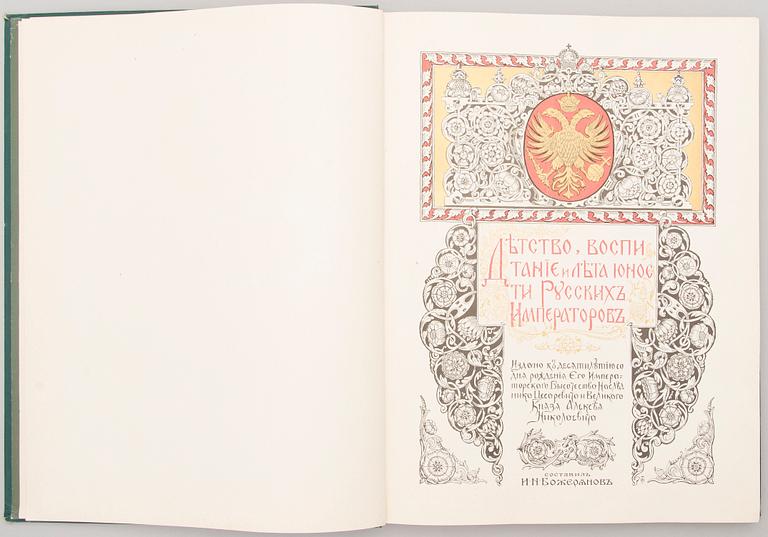 Дѣтство, воспи
танiе и лѣта юнос
ти Русскихъ
Императоровъ
Издано къ десятилѣтiю со
дня рожденiя Его Импера-
торскаго Высочества Наслѣд
ника Цесаревича и Великаго
Князя Алексѣя
Николаевича
составилъ
И·Н·Божеряновъ